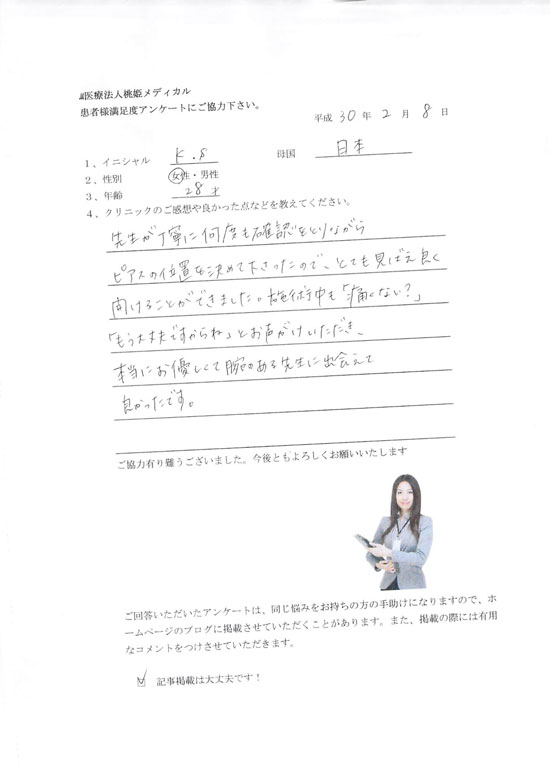 医療法人桃姫メディカル
患者様満足度アンケートにご協力下さい。
平成 30 年 2 月 8 日
1、イニシャル K.S 母国 日本
2、性別 女性・男性
3、年齢 28才
4、クリニックのご感想や良かった点などを教えてください。
先生が丁寧に何度も確認をとりながら
ピアスの位置を決めて下さったので、とても見ばえ良く
開けることができました。施術中も「痛くない？」
「もう大丈夫ですからね」とお声がけいただき、
本当にお優しくて腕のある先生に出会えて
良かったです。
ご協力有り難うございました。今後ともよろしくお願いいたします
ご回答いただいたアンケートは、同じ悩みをお持ちの方の手助けになりますので、ホ
ームページのブログに掲載させていただくことがあります。また、掲載の際には有用
なコメントをつけさせていただきます。
☑ 記事掲載は大丈夫です！